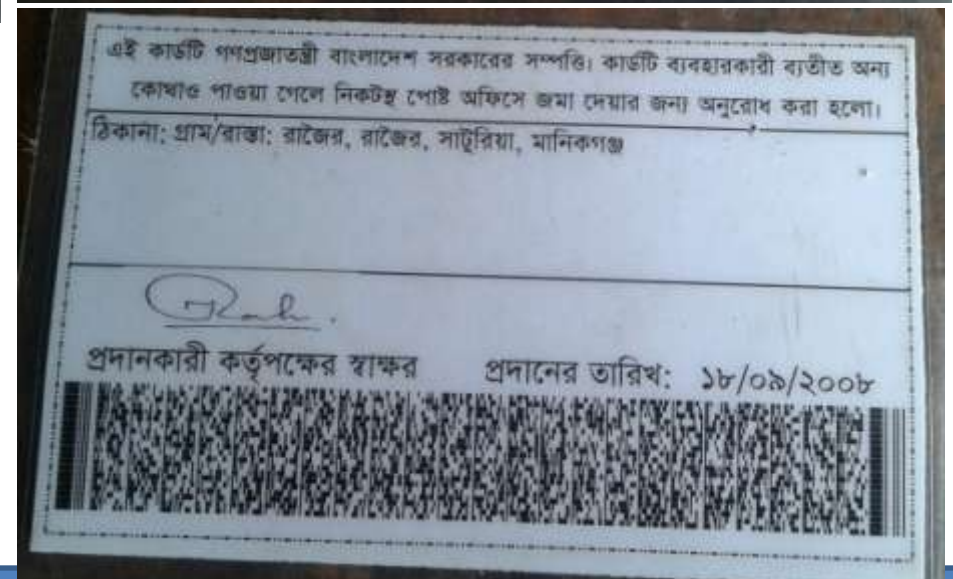 এই কার্ডটি গণপ্রজাতন্ত্রী বাংলাদেশ সরকারের সম্পত্তি। কার্ডটি ব্যবহারকারী ব্যতীত অন্য
কোথাও পাওয়া গেলে নিকটস্থ পোষ্ট অফিসে জমা দেয়ার জন্য অনুরোধ করা হলো।
ঠিকানা: গ্রাম/রাস্তা: রাজৈর, রাজৈর, সাটুরিয়া, মানিকগঞ্জ
প্রদানকারী কর্তৃপক্ষের স্বাক্ষর প্রদানের তারিখ: ১৮/০৯/২০০৮